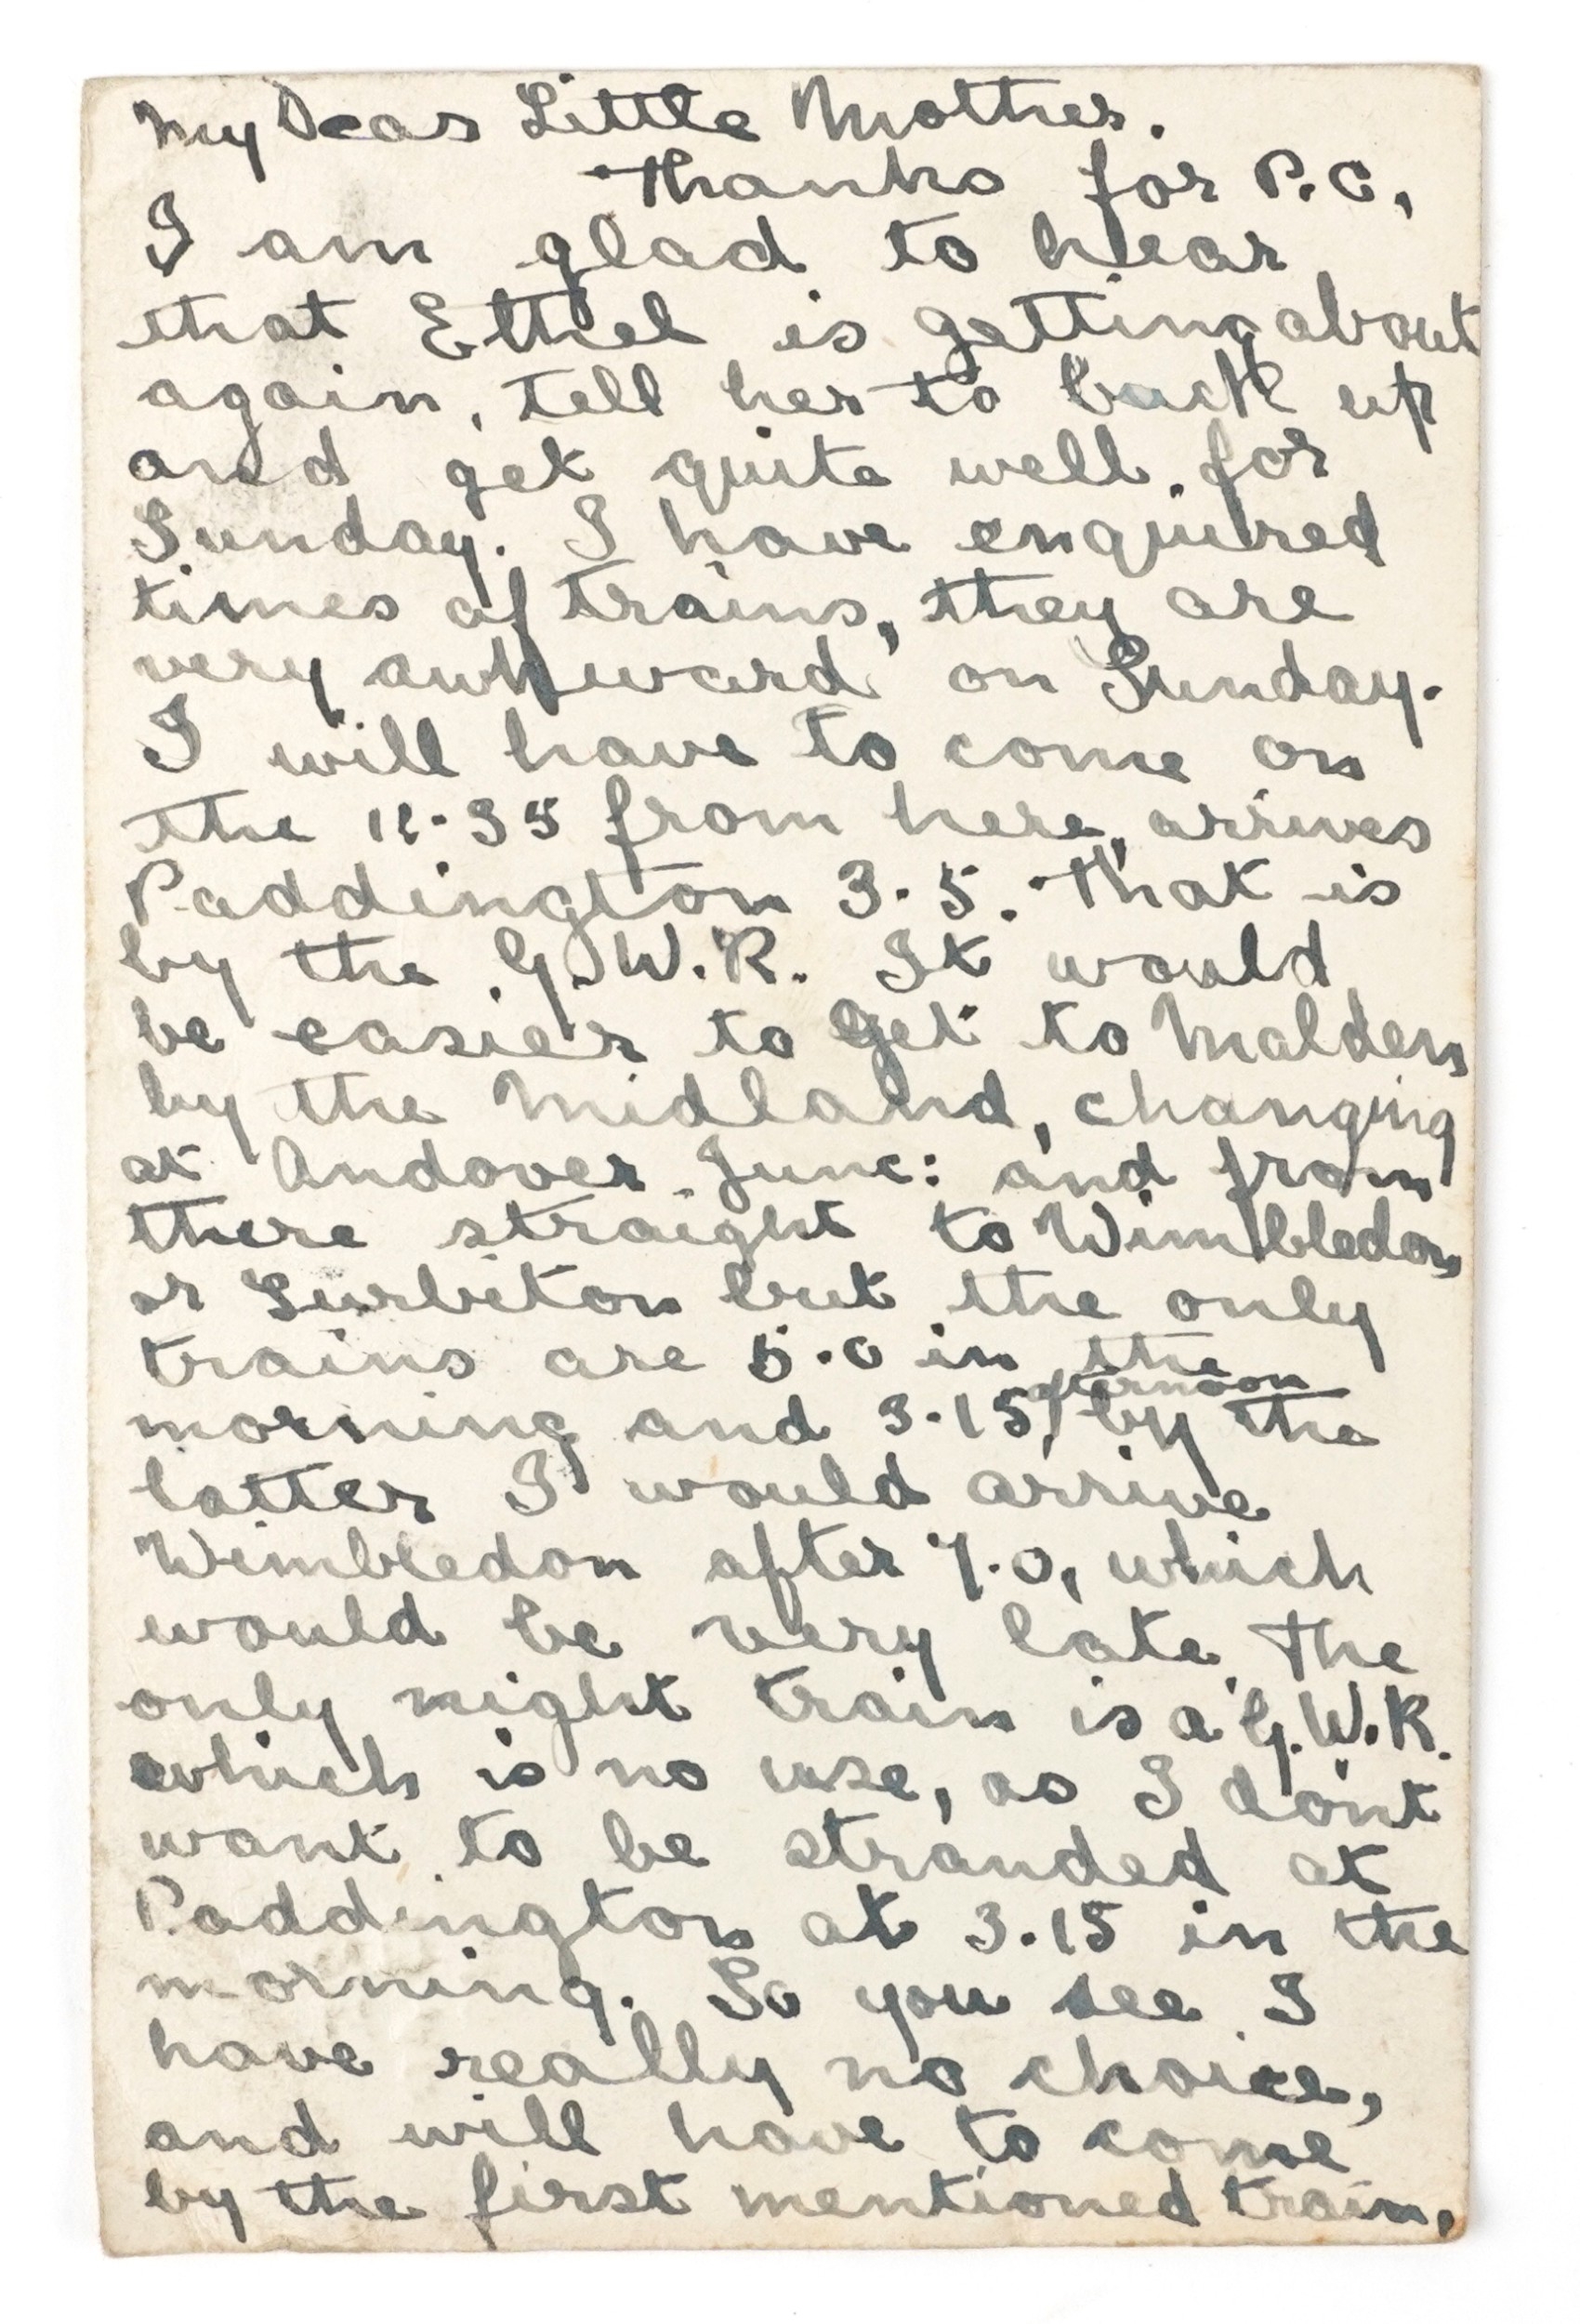 My Dear Little Mother.
Thanks for P.C,
I am glad to hear
that Ethel is getting about
again, tell her to buck up
and get quite well for
Sunday. I have enquired
times of trains, they are
very awkward on Sunday.
I will have to come on
the 12.35 from here, arrives
Paddington 3.5. That is
by the G.W.R. It would
be easier to get to Malden
by the Midland, changing
at Andover Junc: and from
there straight to Wimbledon
or Surbiton but the only
trains are 5.0 in the
afternoon
morning and 3.15, by the
latter I would arrive
Wimbledon after 7.0, which
would be very late. The
only night train is a G.W.R.
which is no use, as I dont
want to be stranded at
Paddington at 3.15 in the
morning. So you see I
have really no choice,
and will have to come
by the first mentioned train.